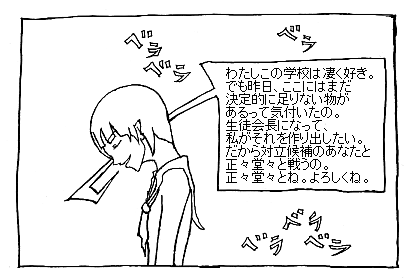 ベラ
ベラ
ベラ
わたしこの学校は凄く好き。
でも昨日、ここにはまだ
決定的に足りない物が
あるって気付いたの。
生徒会長になって、
私がそれを作り出したい。
だから対立候補のあなたと
正々堂々と戦うの。
正々堂々とね。よろしくね。
ベラ
ベラ
ベラ